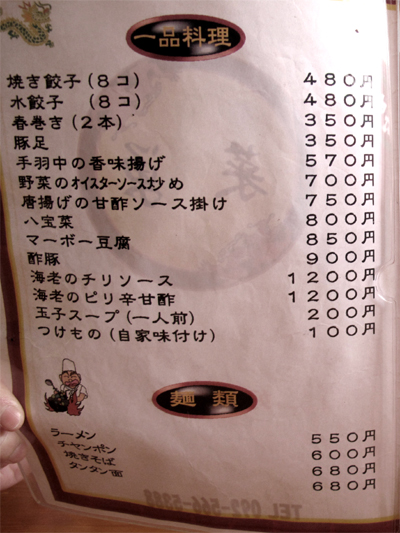 一品料理
焼き餃子(8コ) 480円
水餃子 (8コ) 480円
春巻き(2本) 350円
豚足 350円
手羽中の香味揚げ 570円
野菜のオイスターソース炒め 700円
唐揚げの甘酢ソース掛け 750円
八宝菜 800円
マーボー豆腐 850円
酢豚 900円
海老のチリソース 1200円
海老のピリ辛甘酢 1200円
玉子スープ(一人前) 200円
つけもの(自家味付け) 100円
麺類
ラーメン 550円
チャンポン 600円
焼きそば 680円
タンタン面 680円